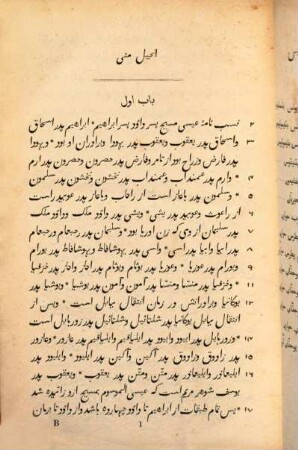 انجیل متی
باب اول
۲ نسب نامهٔ عیسی مسیح پسر داوٗد پسر ابراهیم * ابراهیم پدر اسحاق
۳ واسحاق پدر یعقوب ویعقوب پدر یهودا وبراوران او بود * ویهودا
پدر فارض وزراح بود از تامر وفارض پدر حصرون وحصرون پدر ارم
۴ * وارم پدر عمینداب وعمینداب پدر نخشون ونخشون پدر سلمون
۵ * وسلمون پدر باعاز است از راعاب وباعاز پدر عوبید است
۶ از راعوث وعوبید پدر یشی * ویشی پدر داوٗد ملک وداوٗد ملک
۷ پدر سلیمان از وی که زن اوریا بود * وسلیمان پدر رحبعام ورحبعام
۸ پدر ابیا وابیا پدر اسی * واسی پدر یهوشافاط ویهوشافاط پدر یورام
۹ ویورام پدر عوزیا * وعوزیا پدر یوتام ویوتام پدر اعاز واعاز پدر حزقیا
۱۰ * وحزقیا پدر منشا ومنشا پدر آمون وآمون پدر یوشیا * ویوشیا پدر
۱۲ یوکانیا وبراورانش ور زمان انتقال ببابل است * وپس از
انتقال ببابل یوکانیا پدر شلتائیل وشلتائیل پدر زوربابل است
۱۳ * وزوربابل پدر ابیود وابیود پدر ایلیاقیم وایلیاقیم پدر عازور * وعازور
۱۵ پدر زادوق وزادوق پدر آکین وآکین پدر ایلیود * وایلیود پدر
۱۶ ایلیعازر وایلیعازر پدر متثن ومتثن پدر یعقوب * ویعقوب پدر
یوسف شوهر مریم است که عیسی الموسوم بمسیح ازو زائیده شد
۱۷ * پس تمام طبقات از ابراهیم تا داوٗد چهارده باشد واز داوٗد تا زمان
B 1